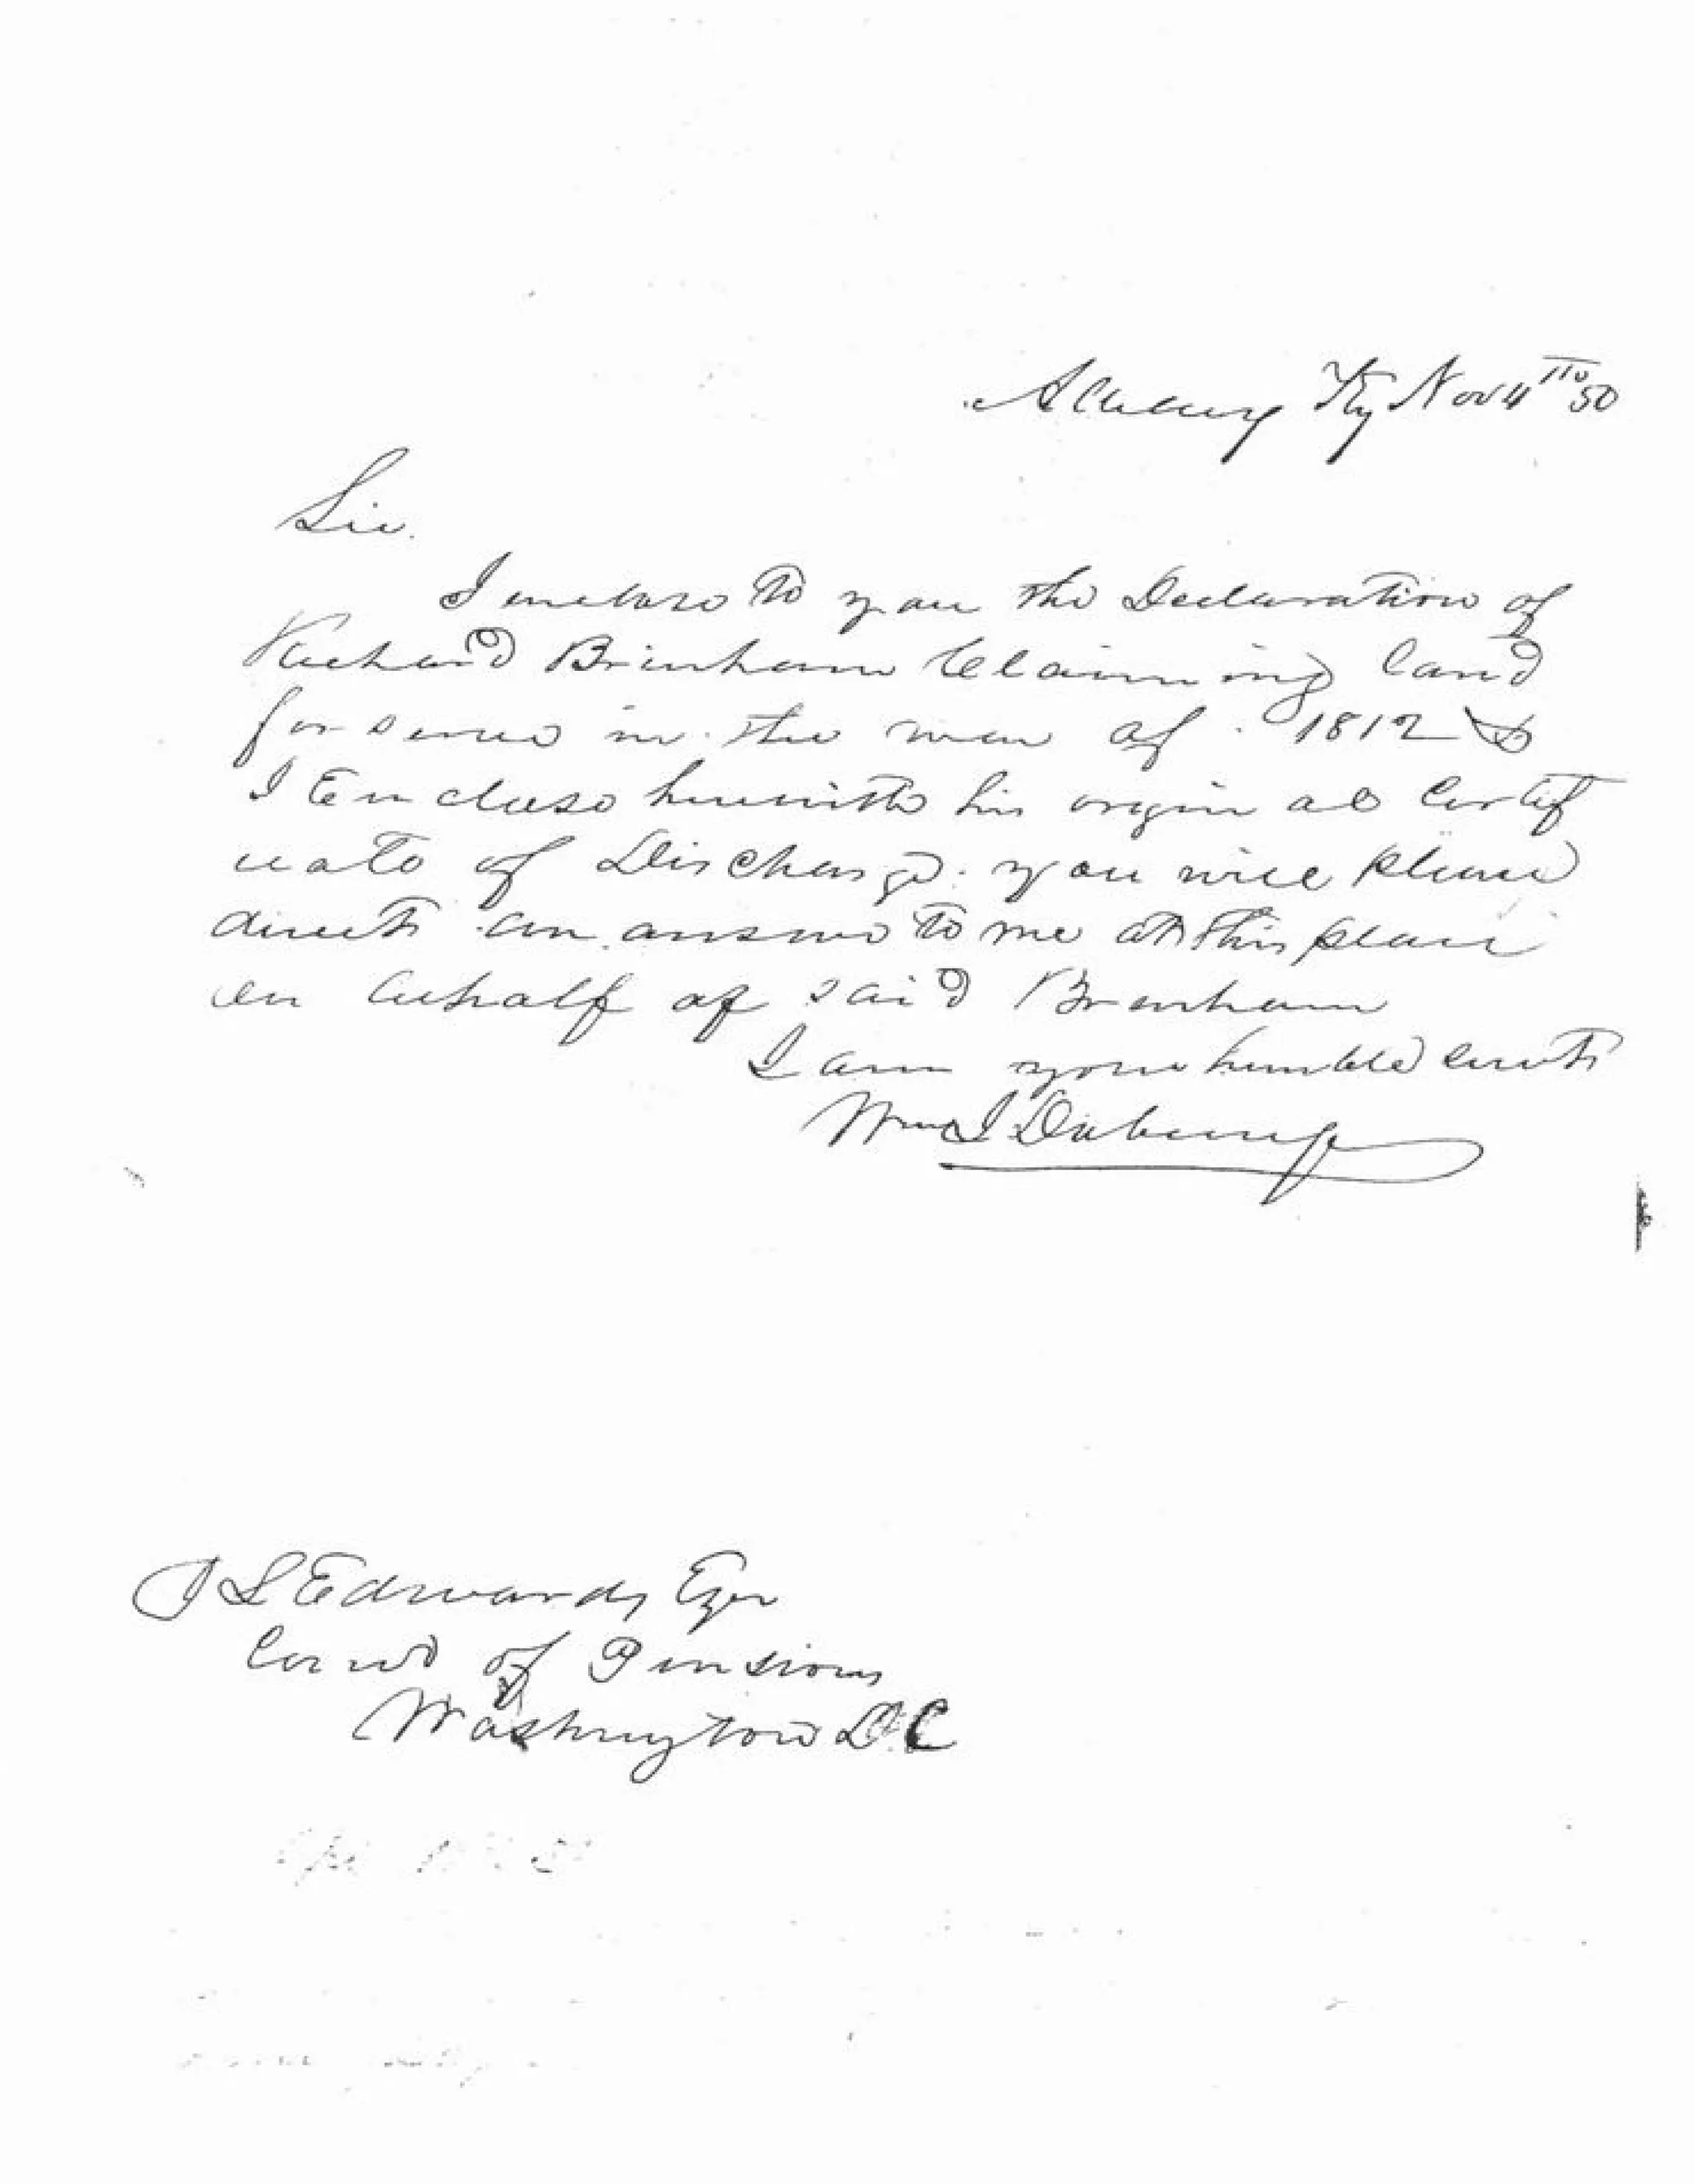 Albany Ky Nov 4th 50
Sir.
I enclose to you the Declaration of
Richard Brinham Claiming land
for service in the war of 1812 &
I Enclose herewith his original Certif
icate of Discharge. you will please
direct an answer to me at this place
on behalf of said Brenham
I am your humble Servt
Wm
J L Edwards Eqr
Comd of Pensions
Washington D.C